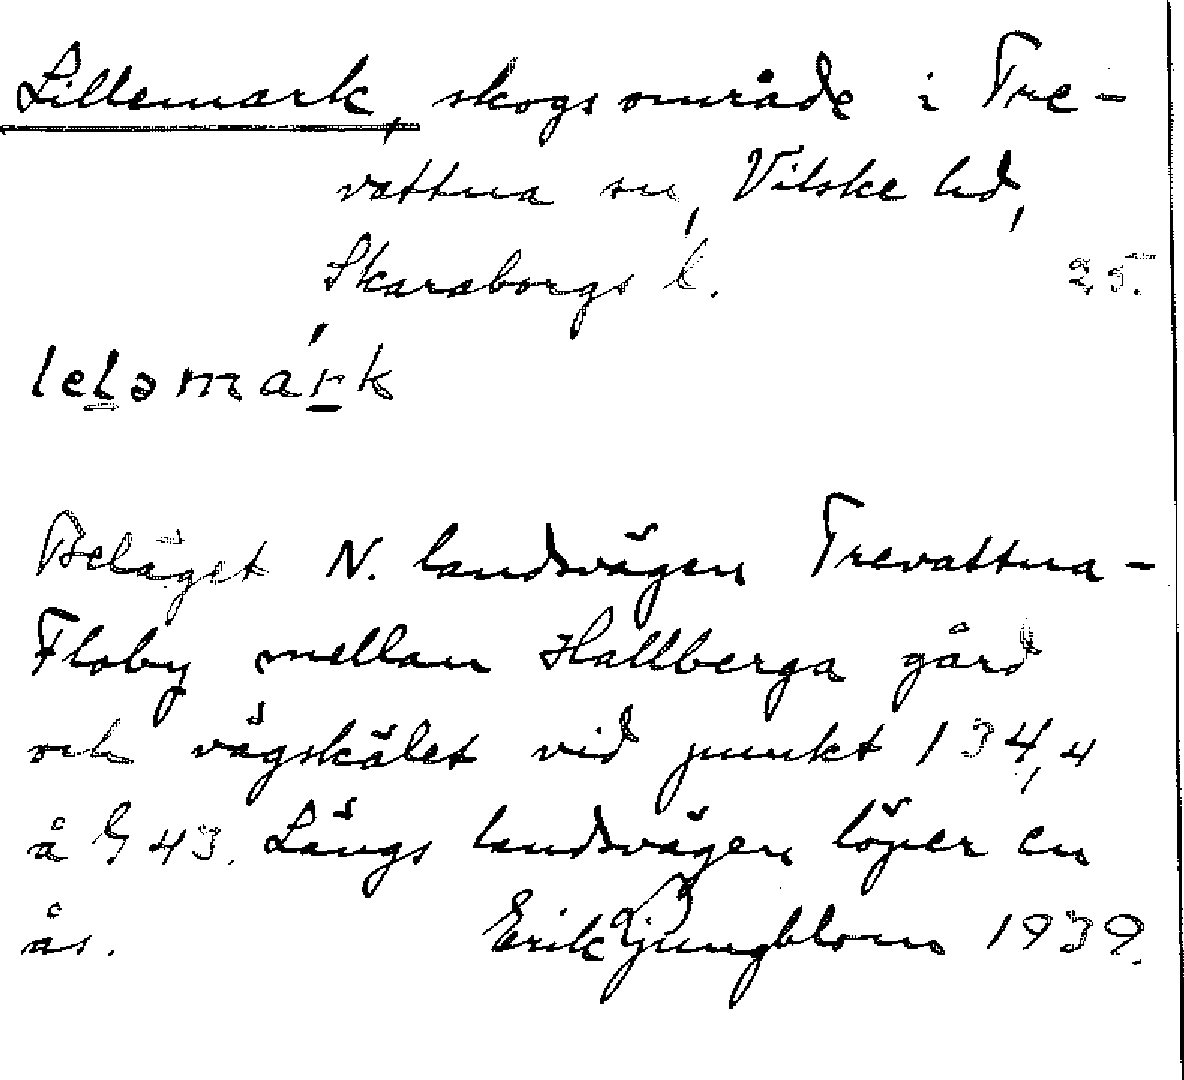 Lillemark, skogsområde i Tre-
vattna sn, Vilske hd,
Skaraborgs l. 25.
lelǝmárk
Beläget N. landsvägen Trevattna-
Floby mellan Hallberga gård
och vägskälet vid punkt 134,4
å G 43. Längs landsvägen löper en
ås. Erik Ljungblom 1939.